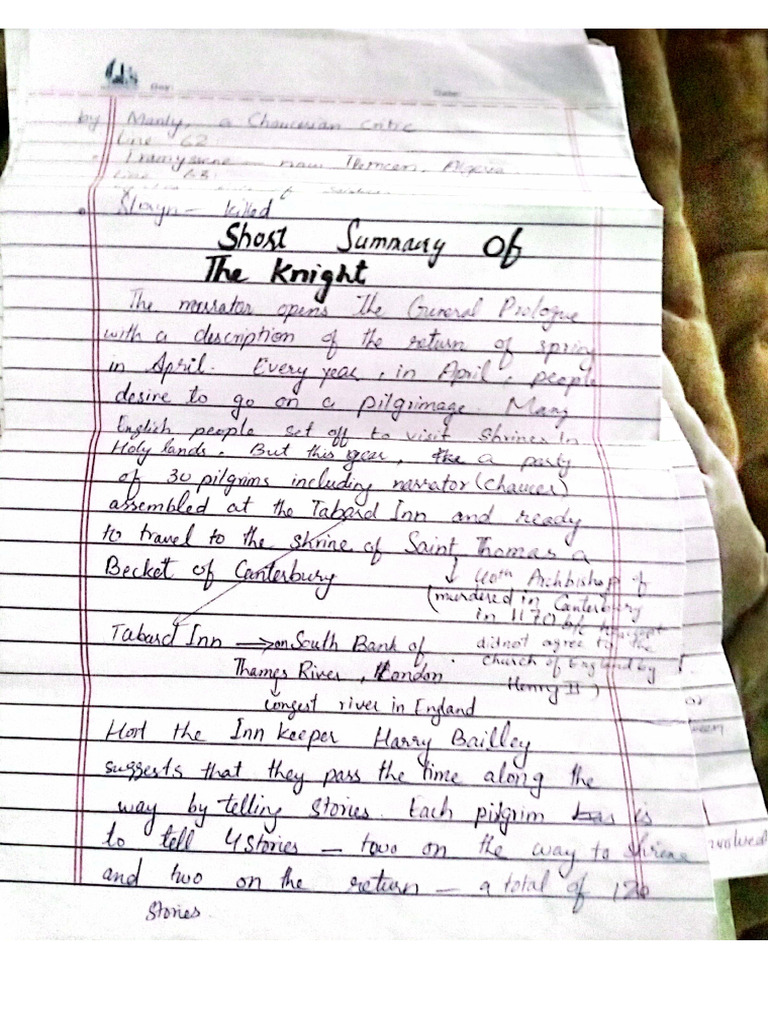 by Manly, a Chaucerian critic
Line 62
Tramyssene — now Tlemcen, Algeria
Line 63
Slayn — killed
Short Summary Of
The Knight
The narrator opens The General Prologue
with a description of the return of spring
in April. Every year, in April, people
desire to go on a pilgrimage. Many
English people set off to visit shrines in
Holy lands. But this year, the a party
of 30 pilgrims including narrator (Chaucer)
assembled at the Tabard Inn and ready
to travel to the shrine of Saint Thomas a
Becket of Canterbury
↓ 40th Archbishop of
(murdered in Canterbury
in 1170
did not agree to the
church of England by
Henry II)
Tabard Inn → on South Bank of
Thames River, London
↓
longest river in England
Hort the Inn keeper Harry Bailley
suggests that they pass the time along the
way by telling stories. Each pilgrim has is
to tell 4 stories — two on the way to shrine
and two on the return — a total of 120
stories.
nvolved